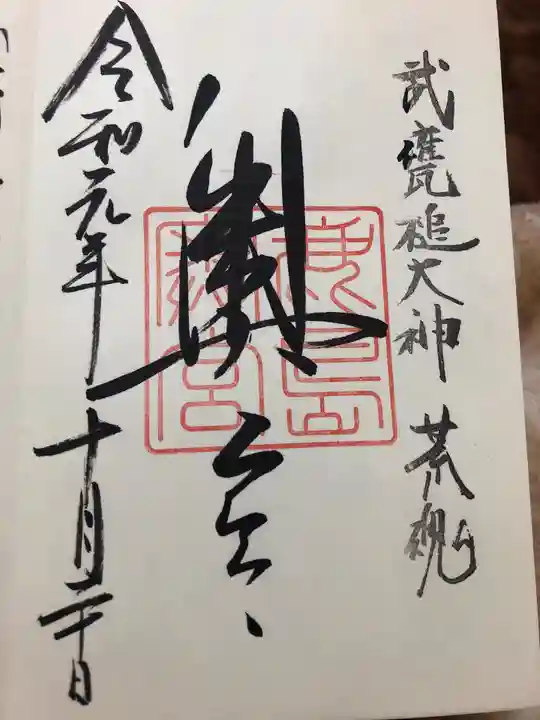 武甕槌大神 荒魂
奥宮
鹿島
奥宮
令和元年十月二十日